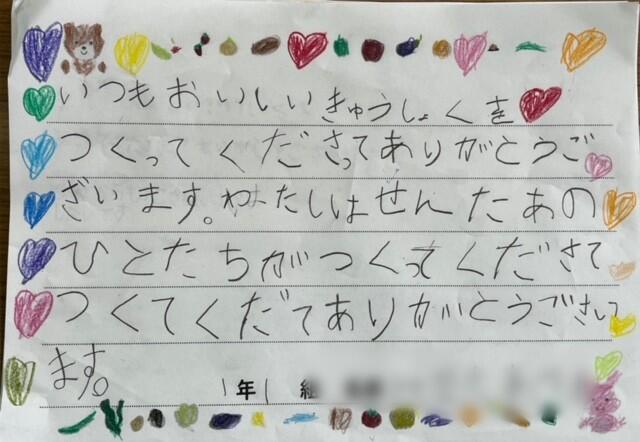 いつもおいしいきゅうしょくを
つくってくださってありがとうご
ざいます。わたしはせんたあの
ひとたちがつくってくださて
つくてくだてありがとうござい
ます。
1年1組